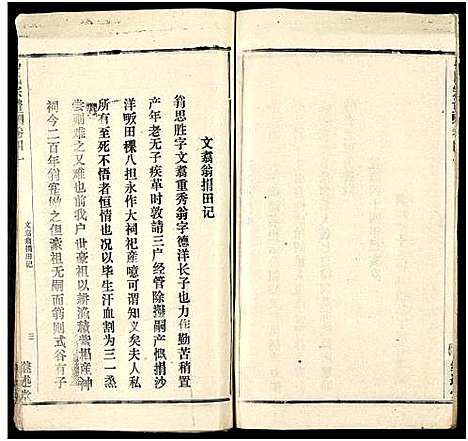 文翥翁捐田记
翁思胜字文翥重秀翁字德洋长子也力作勤苦稍置
产年老无子疾革时敦請三户经管除撥嗣产慨捐沙
洋畈田稞八担永作大祠祀産噫可谓知义矣夫人私
所有至死不悟者恒情也以毕生汗血割为三一烝
尝则难之又难也前我户世豪祖以耕鸿贖黨捐産神
祠今二百年翁寔做之但豪祖无嗣而翁则式谷有子
文翥翁捐田记
三